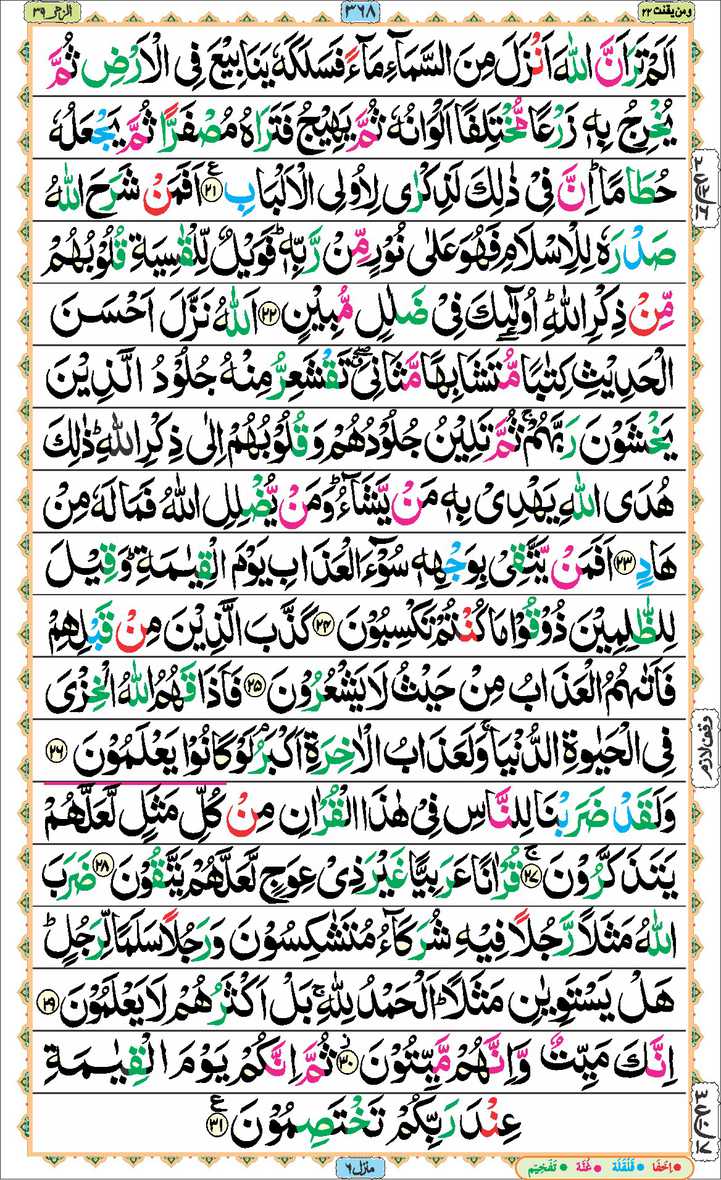 ومن يقنت ٢٣
٣٦٨
الزمر ٣٩
اَلَمْ تَرَ اَنَّ اللّٰهَ اَنْزَلَ مِنَ السَّمَآءِ مَآءً فَسَلَكَهٗ يَنَابِيْعَ فِى الْاَرْضِ ثُمَّ
يُخْرِجُ بِهٖ زَرْعًا مُّخْتَلِفًا اَلْوَانُهٗ ثُمَّ يَهِيْجُ فَتَرٰىهُ مُصْفَرًّا ثُمَّ يَجْعَلُهٗ
حُطَامًا ؕ اِنَّ فِىْ ذٰلِكَ لَذِكْرٰى لِاُولِى الْاَلْبَابِ ﴿٢١﴾ ع اَفَمَنْ شَرَحَ اللّٰهُ
صَدْرَهٗ لِلْاِسْلَامِ فَهُوَ عَلٰى نُوْرٍ مِّنْ رَّبِّهٖ ؕ فَوَيْلٌ لِّلْقٰسِيَةِ قُلُوْبُهُمْ
مِّنْ ذِكْرِ اللّٰهِ ؕ اُولٰٓئِكَ فِىْ ضَلٰلٍ مُّبِيْنٍ ﴿٢٢﴾ اَللّٰهُ نَزَّلَ اَحْسَنَ
الْحَدِيْثِ كِتٰبًا مُّتَشَابِهًا مَّثَانِىَ ۖ تَقْشَعِرُّ مِنْهُ جُلُوْدُ الَّذِيْنَ
يَخْشَوْنَ رَبَّهُمْ ۚ ثُمَّ تَلِيْنُ جُلُوْدُهُمْ وَقُلُوْبُهُمْ اِلٰى ذِكْرِ اللّٰهِ ؕ ذٰلِكَ
هُدَى اللّٰهِ يَهْدِىْ بِهٖ مَنْ يَّشَآءُ ؕ وَمَنْ يُّضْلِلِ اللّٰهُ فَمَا لَهٗ مِنْ
هَادٍ ﴿٢٣﴾ اَفَمَنْ يَّتَّقِىْ بِوَجْهِهٖ سُوْٓءَ الْعَذَابِ يَوْمَ الْقِيٰمَةِ ؕ وَقِيْلَ
لِلظّٰلِمِيْنَ ذُوْقُوْا مَا كُنْتُمْ تَكْسِبُوْنَ ﴿٢٤﴾ كَذَّبَ الَّذِيْنَ مِنْ قَبْلِهِمْ
فَاَتٰىهُمُ الْعَذَابُ مِنْ حَيْثُ لَا يَشْعُرُوْنَ ﴿٢٥﴾ فَاَذَاقَهُمُ اللّٰهُ الْخِزْىَ
فِى الْحَيٰوةِ الدُّنْيَا ۚ وَلَعَذَابُ الْاٰخِرَةِ اَكْبَرُ ۘ لَوْ كَانُوْا يَعْلَمُوْنَ ﴿٢٦﴾
وَلَقَدْ ضَرَبْنَا لِلنَّاسِ فِىْ هٰذَا الْقُرْاٰنِ مِنْ كُلِّ مَثَلٍ لَّعَلَّهُمْ
يَتَذَكَّرُوْنَ ۚ﴿٢٧﴾ قُرْاٰنًا عَرَبِيًّا غَيْرَ ذِىْ عِوَجٍ لَّعَلَّهُمْ يَتَّقُوْنَ ﴿٢٨﴾ ضَرَبَ
اللّٰهُ مَثَلًا رَّجُلًا فِيْهِ شُرَكَآءُ مُتَشٰكِسُوْنَ وَرَجُلًا سَلَمًا لِّرَجُلٍ ؕ
هَلْ يَسْتَوِيٰنِ مَثَلًا ؕ اَلْحَمْدُ لِلّٰهِ ۚ بَلْ اَكْثَرُهُمْ لَا يَعْلَمُوْنَ ﴿٢٩﴾
اِنَّكَ مَيِّتٌ وَّاِنَّهُمْ مَّيِّتُوْنَ ۫﴿٣٠﴾ ثُمَّ اِنَّكُمْ يَوْمَ الْقِيٰمَةِ
عِنْدَ رَبِّكُمْ تَخْتَصِمُوْنَ ﴿٣١﴾ ع
وقف لازم
منزل ٦
اِخفَا قَلقَلَه غُنَّه تَفخِيم